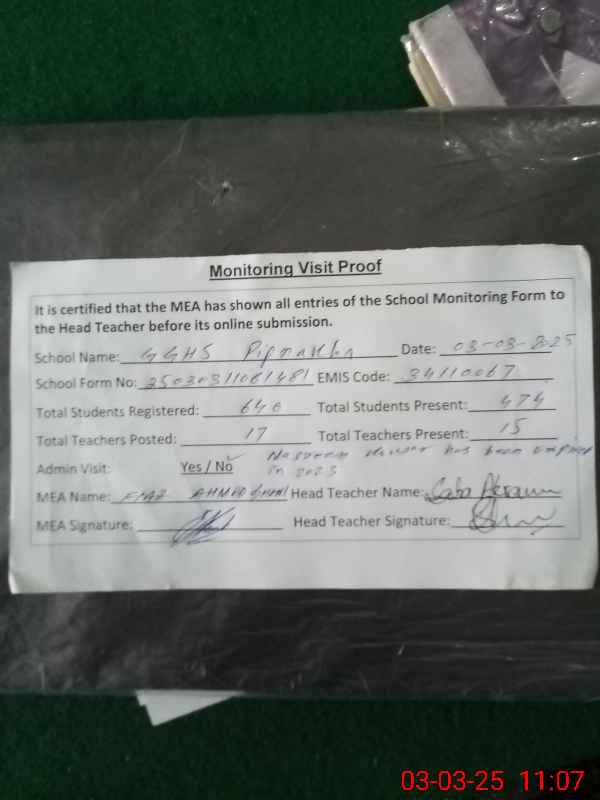 Monitoring Visit Proof
It is certified that the MEA has shown all entries of the School Monitoring Form to
the Head Teacher before its online submission.
School Name: GGHS Date: 03-03-2025
School Form No: 25030311061481 EMIS Code: 34110067
Total Students Registered: 640 Total Students Present: 474
Total Teachers Posted: 17 Total Teachers Present: 15
Admin Visit: Yes / No has been
in 2023
MEA Name: AHMED Head Teacher Name: Saba
MEA Signature: Head Teacher Signature:
03-03-25 11:07